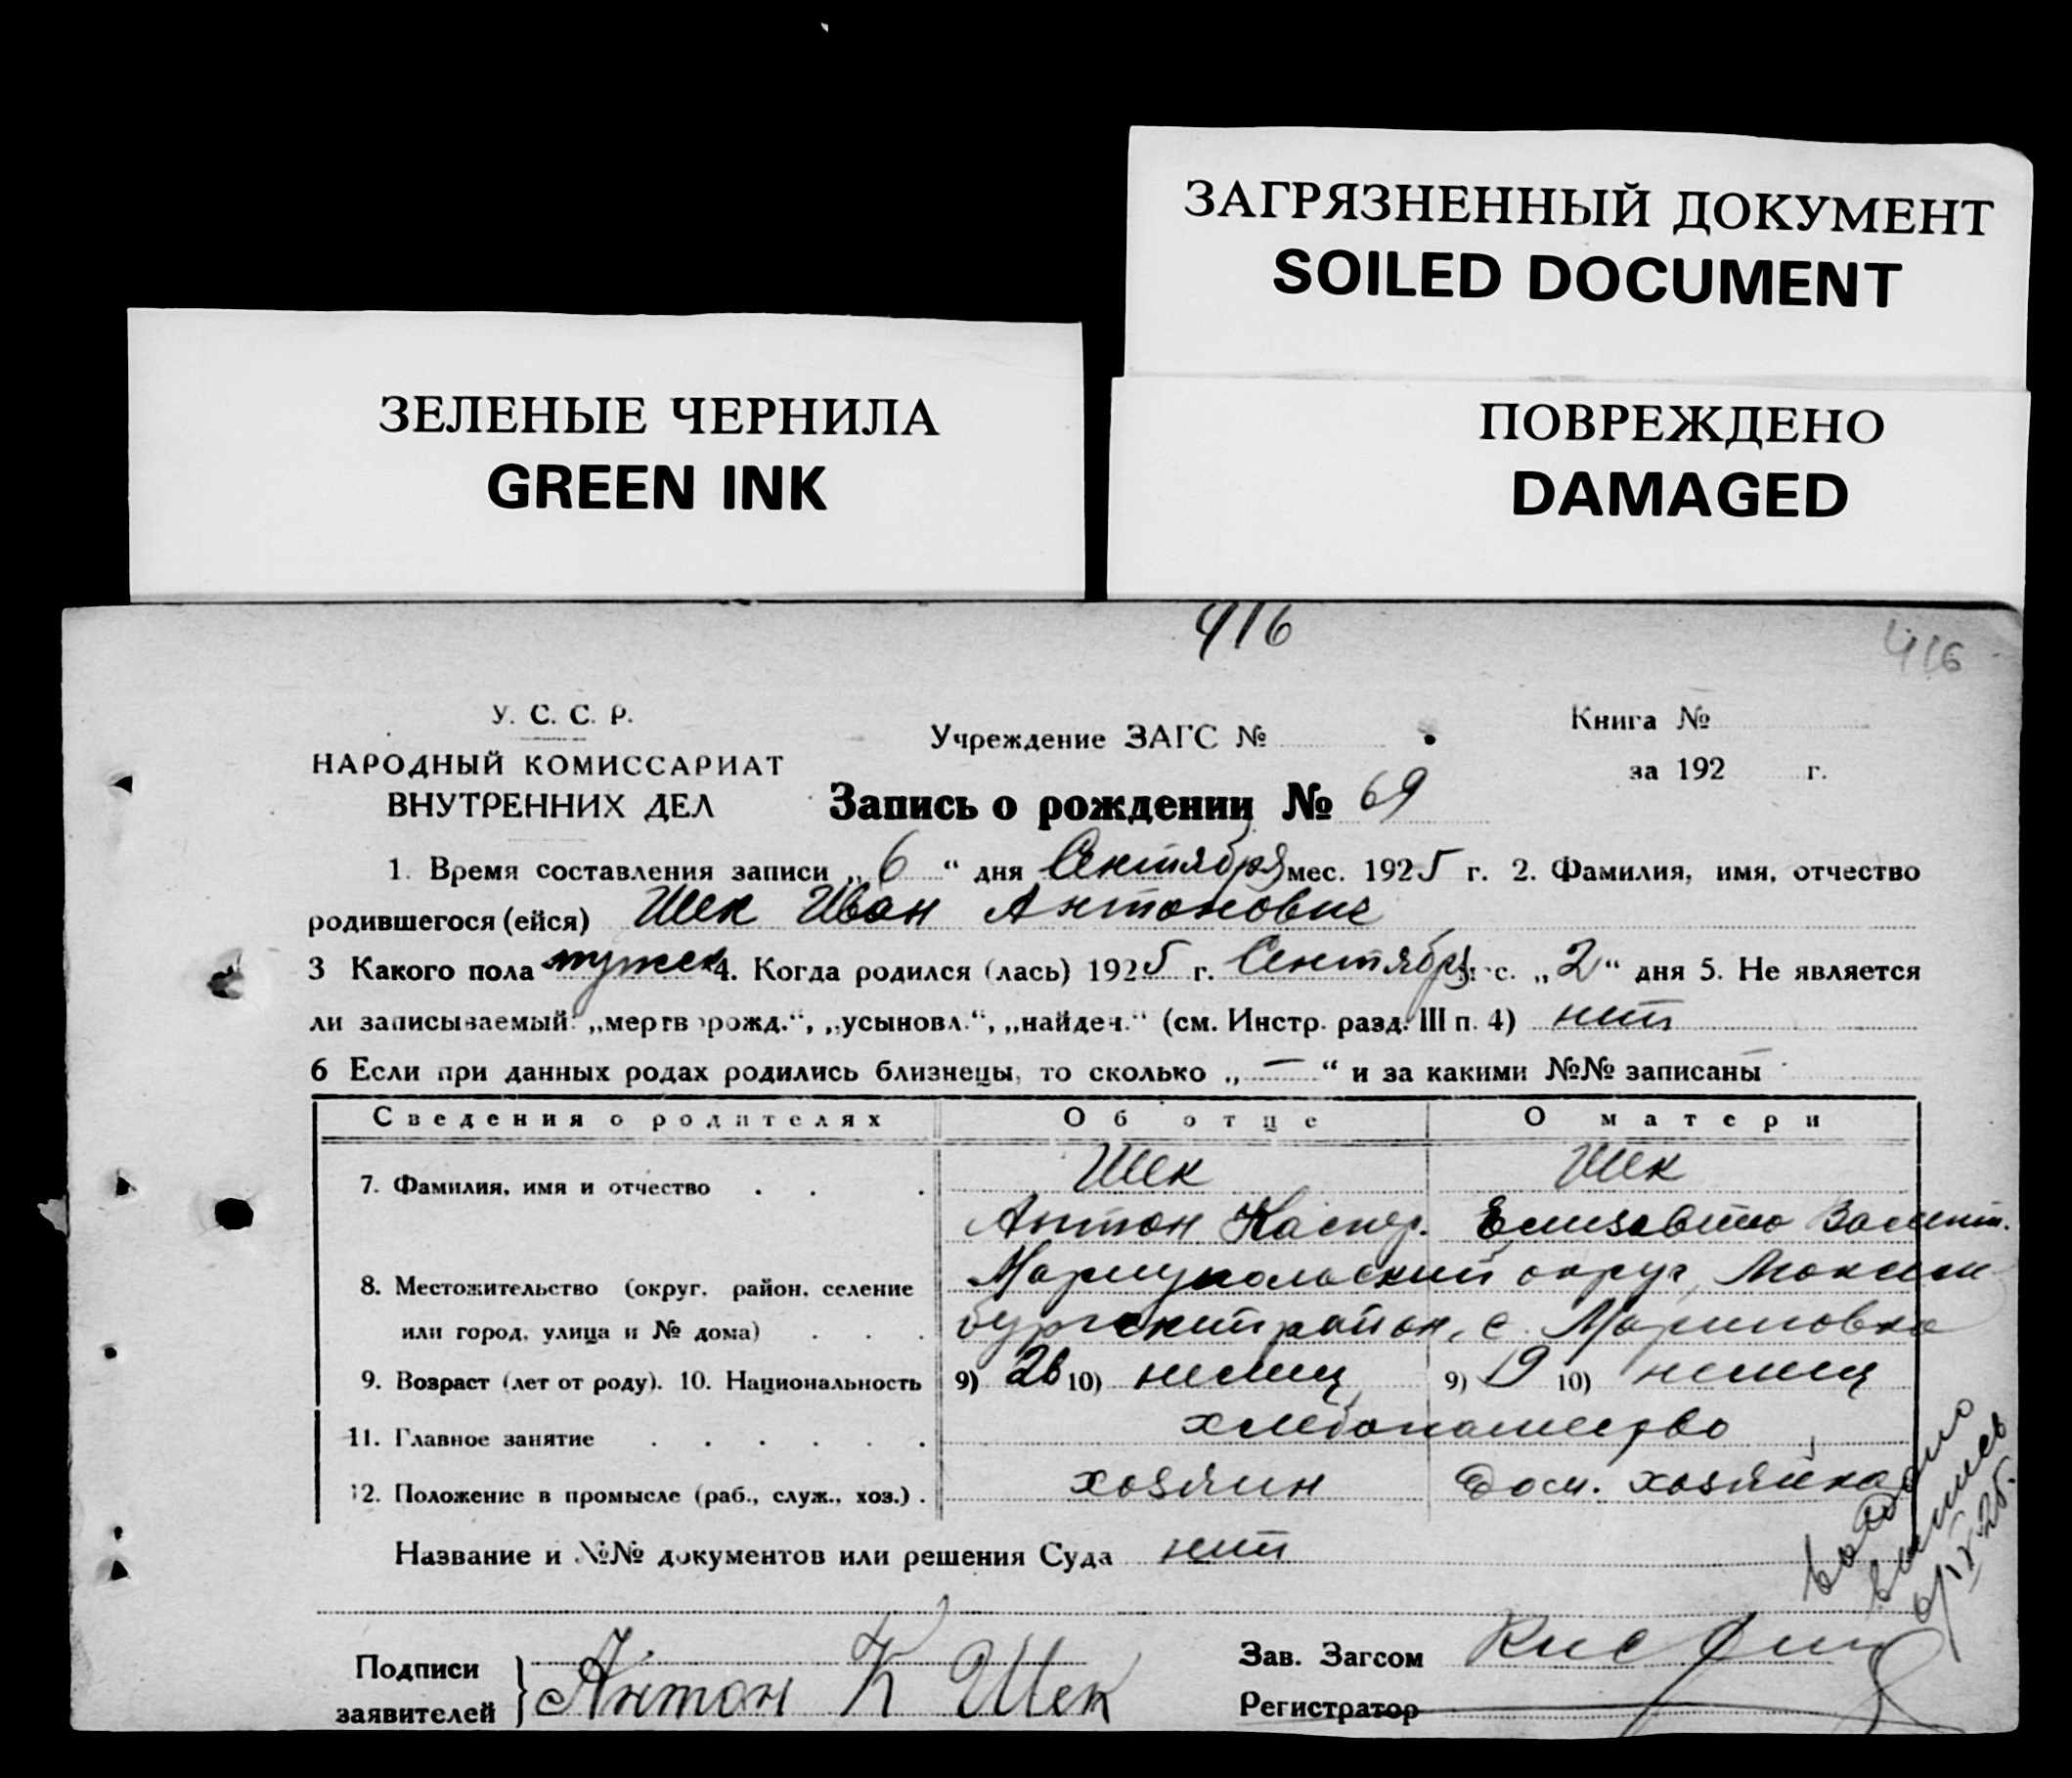 ЗАГРЯЗНЕННЫЙ ДОКУМЕНТ
SOILED DOCUMENT
ЗЕЛЕНЫЕ ЧЕРНИЛА
GREEN INK
ПОВРЕЖДЕНО
DAMAGED
416
416
У. С. С. Р.
НАРОДНЫЙ КОМИССАРИАТ
ВНУТРЕННИХ ДЕЛ
Учреждение ЗАГС №
Книга №
за 192 г.
Запись о рождении № 69
1. Время составления записи „ 6 “ дня Сентября мес. 1925 г. 2. Фамилия, имя, отчество
родившегося (ейся) Шек Иван Антонович
3 Какого пола мужск 4. Когда родился (лась) 1925 г. Сентября мес. „ 2 “ дня 5. Не является
ли записываемый: „мертворожд.“, „усыновл.“, „найден.“ (см. Инстр. разд. III п. 4) нет
6 Если при данных родах родились близнецы, то сколько „ — “ и за какими №№ записаны
Сведения о родителях Об отце О матери
7. Фамилия, имя и отчество . . . Шек Шек
Антон Каспер. Елизавета Валент.
8. Местожительство (округ, район, селение Мариупольский округ, Люксем-
или город, улица и № дома) . . . бургский район, с. Мариновка
9. Возраст (лет от роду). 10. Национальность 9) 26 10) немец 9) 19 10) немец
11. Главное занятие . . . . . . хлебопашество
12. Положение в промысле (раб., служ., хоз.) . хозяин дом. хозяйка
Название и №№ документов или решения Суда нет
выдано
6/IX 25.
Подписи
заявителей } Антон К Шек
Зав. Загсом
Регистратор